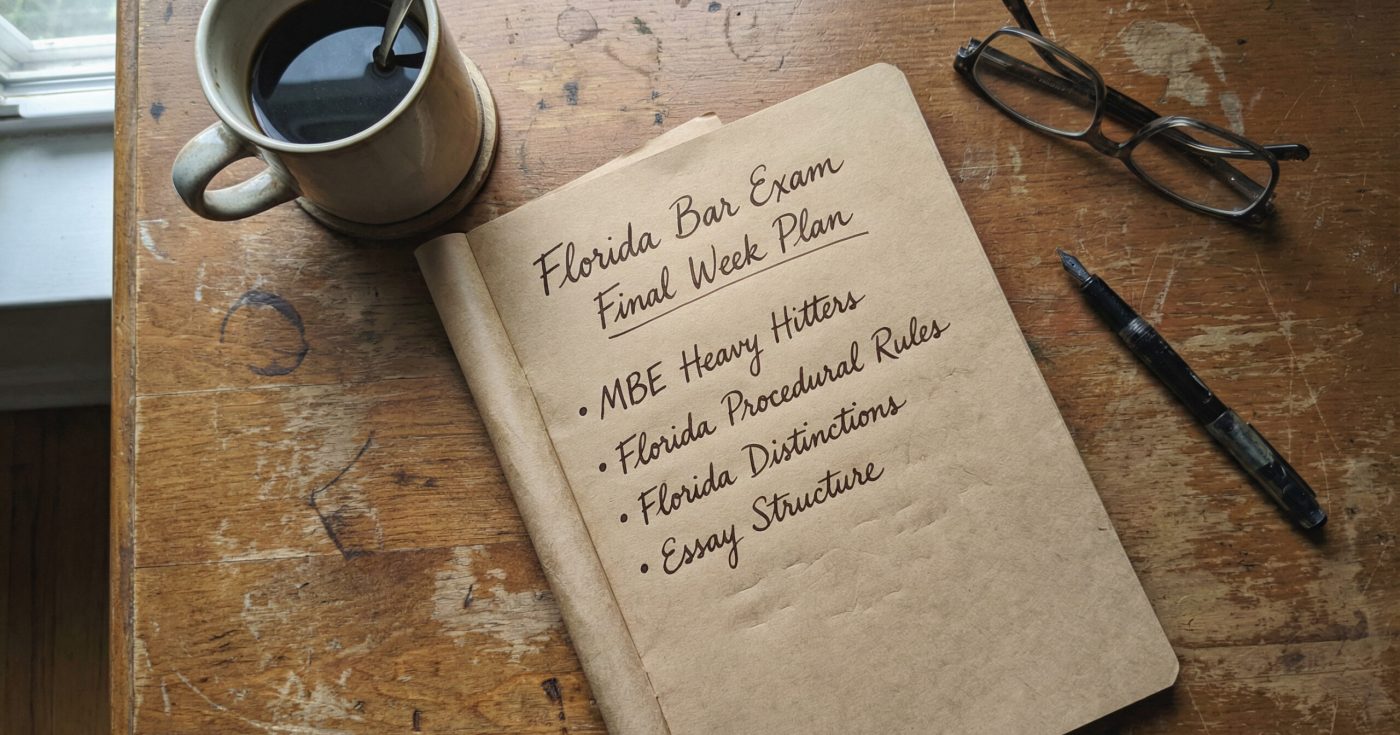 Florida Bar Exam
Final Week Plan
• MBE Heavy Hitters
• Florida Procedural Rules
• Florida Distinctions
• Essay Structure